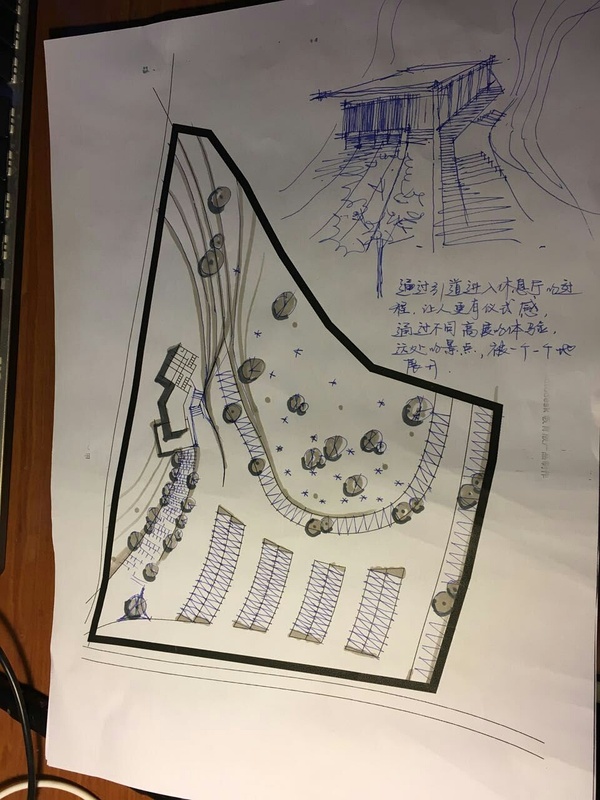 通过引道进入休息厅的过
程，让人更有仪式感，
通过不同高度的体验，
远处的景点，被一个一个地
展开．